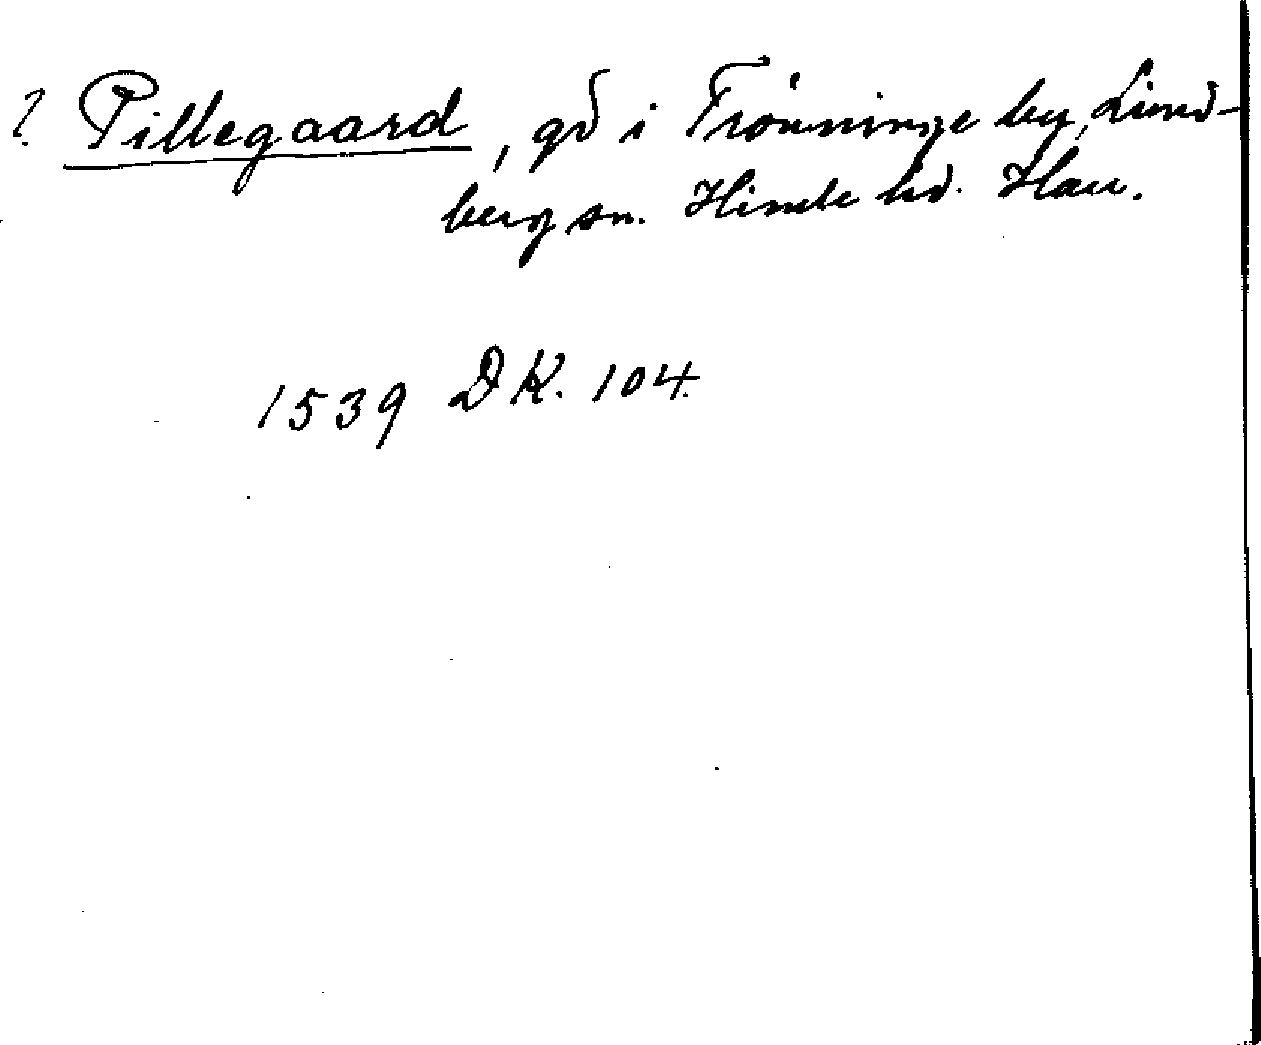 ? Pillegaard, gd i Trönninge by, Lind-
berg sn. Himle hd. Hall.
1539 DK. 104.